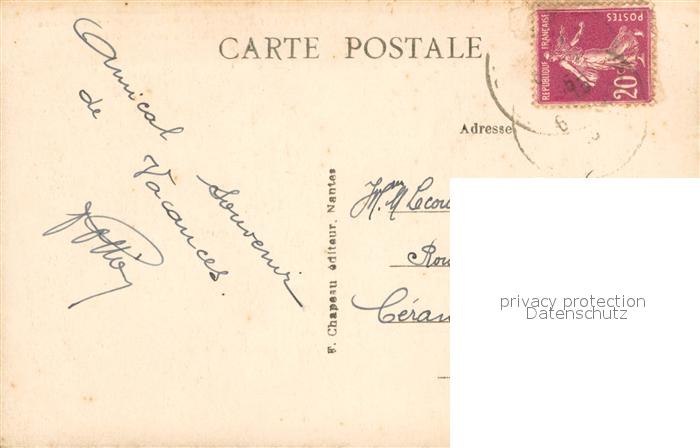 CARTE POSTALE
REPUBLIQUE FRANÇAISE
POSTES
20c
Adresse
Amical souvenir
de Vacances.
F. Chapeau éditeur, Nantes
Céran
privacy protection
Datenschutz